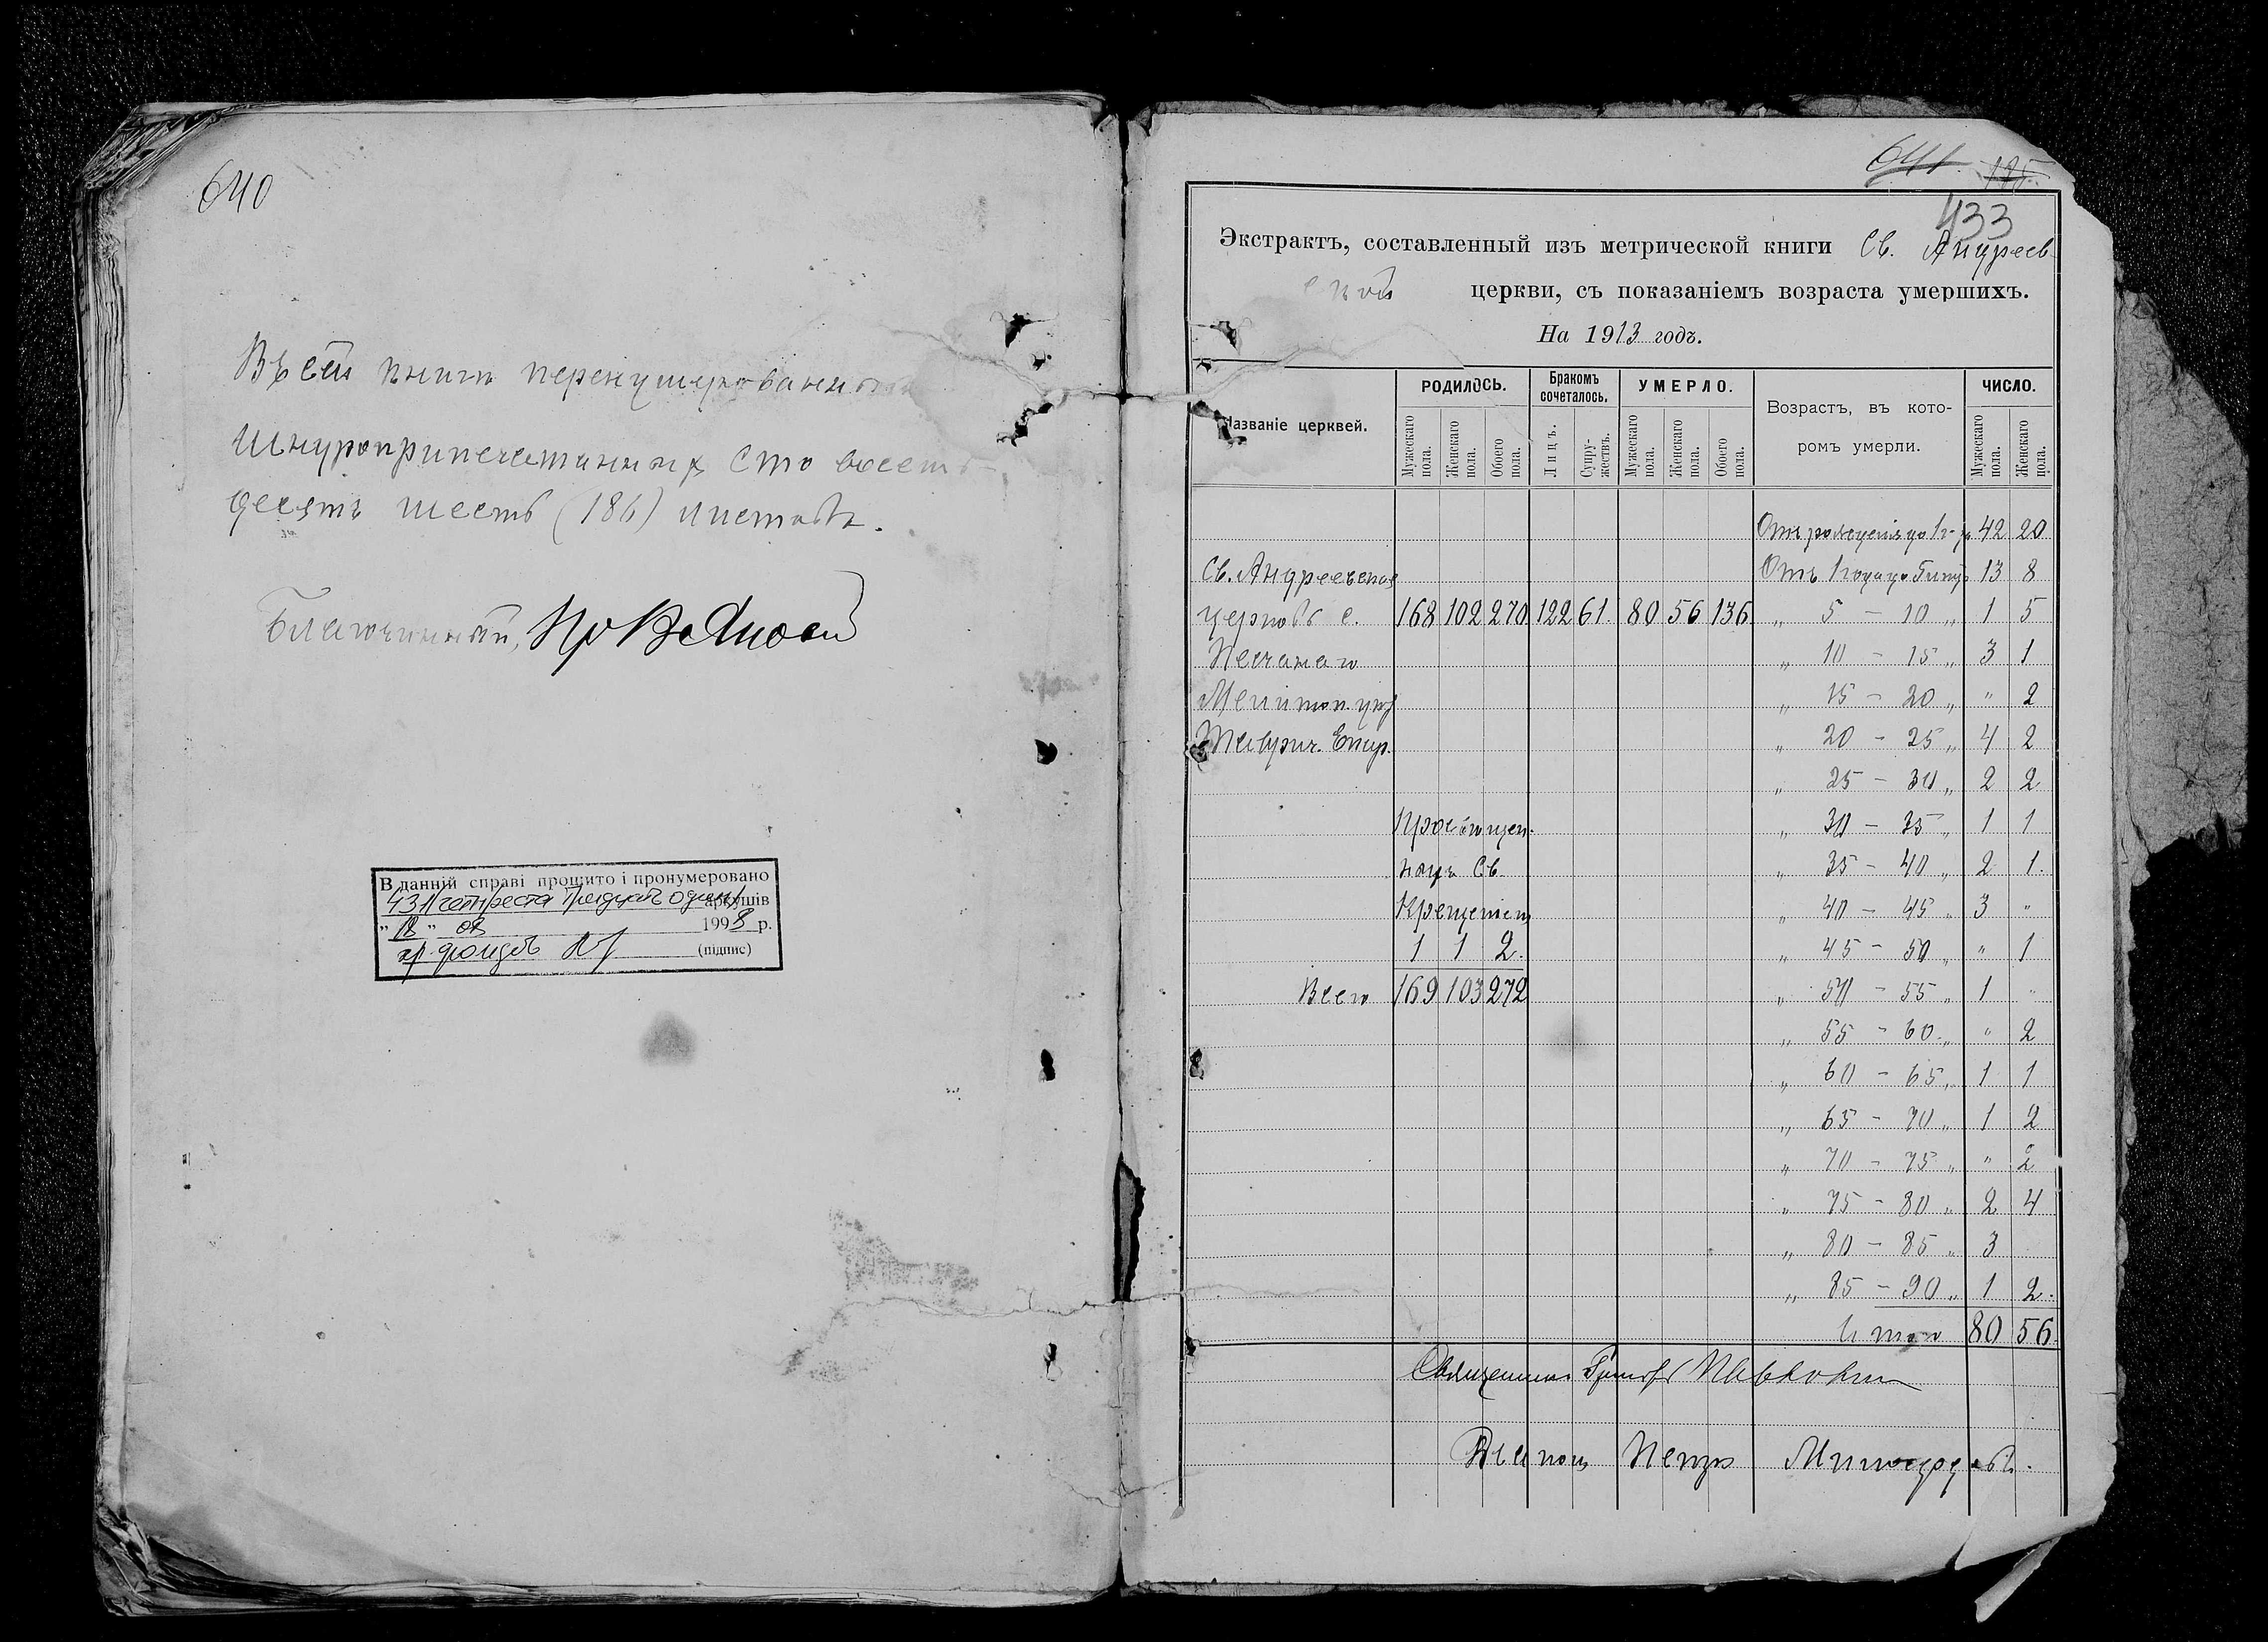 640
Въ сей книгѣ перенумерованныхъ
шнуроприпечатанныхъ сто восемь-
десятъ шесть (186) листовъ.
Благочинный,
В данній справі прошито і пронумеровано
431 (четыреста тридцать один) аркушів
" 18 " 08 1998 р.
хр. фондов (підпис)
641. 185.
433
Экстрактъ, составленный изъ метрической книги Св. Андреев-
ской церкви, съ показаніемъ возраста умершихъ.
На 1913 годъ.
Названіе церквей.
РОДИЛОСЬ.
Мужескаго пола.
Женскаго пола.
Обоего пола.
Бракомъ сочеталось.
Лицъ.
Супру-
жествъ.
УМЕРЛО.
Мужескаго пола.
Женскаго пола.
Обоего пола.
Возрастъ, въ кото-
ромъ умерли.
ЧИСЛО.
Мужескаго пола.
Женскаго пола.
Отъ рожденія до 1 г. 42 20
Св. Андреевская Отъ 1 года до 5 13 8
церковь с. 168 102 270 122 61. 80 56 136. " 5 - 10 " 1 5
Песчанаго " 10 - 15 " 3 1
Мелитоп. уѣз. " 15 - 20 " " 2
Таврич. Епар. " 20 - 25 " 4 2
" 25 - 30 " 2 2
Просвѣщен. " 30 - 35 " 1 1
ныхъ Св. " 35 - 40 " 2 1.
Крещеніемъ " 40 - 45 " 3 "
1 1 2. " 45 - 50 " " 1
Всего 169 103 272 " 50 - 55 " 1 "
" 55 - 60 " " 2
" 60 - 65 " 1 1
" 65 - 70 " 1 2
" 70 - 75 " " 2
" 75 - 80 " 2 4
" 80 - 85 " 3
" 85 - 90 " 1 2.
Итого 80 56.
Священникъ
Псаломщ Петръ Милосердовъ.